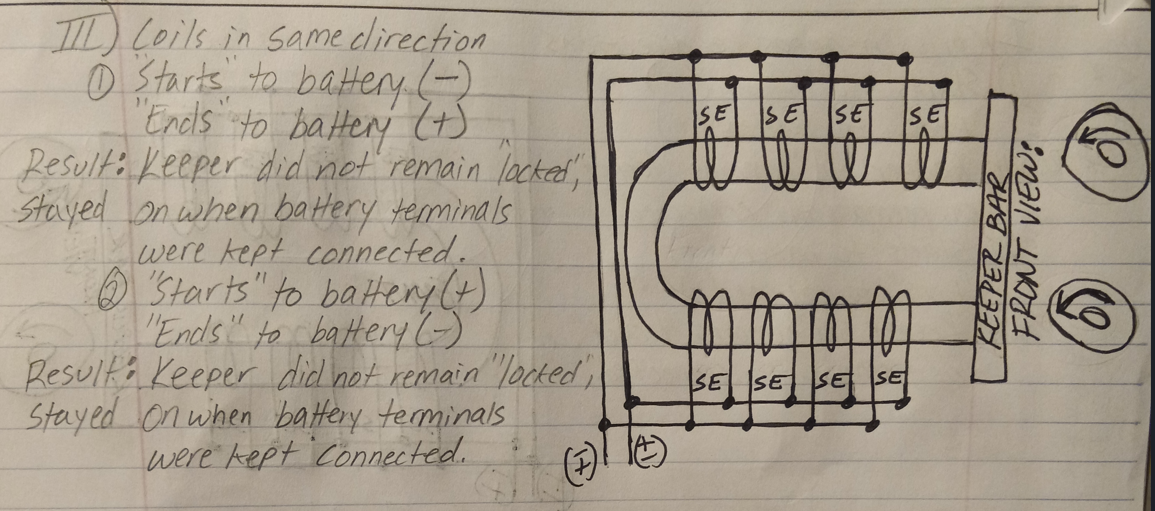 III) Coils in same direction
① "Starts" to battery (-)
"Ends" to battery (+)
Result: Keeper did not remain "locked",
stayed on when battery terminals
were kept connected.
② "Starts" to battery (+)
"Ends" to battery (-)
Result: Keeper did not remain "locked",
stayed on when battery terminals
were kept connected.
SE SE SE SE
KEEPER BAR
FRONT VIEW:
SE SE SE SE
(∓) (±)